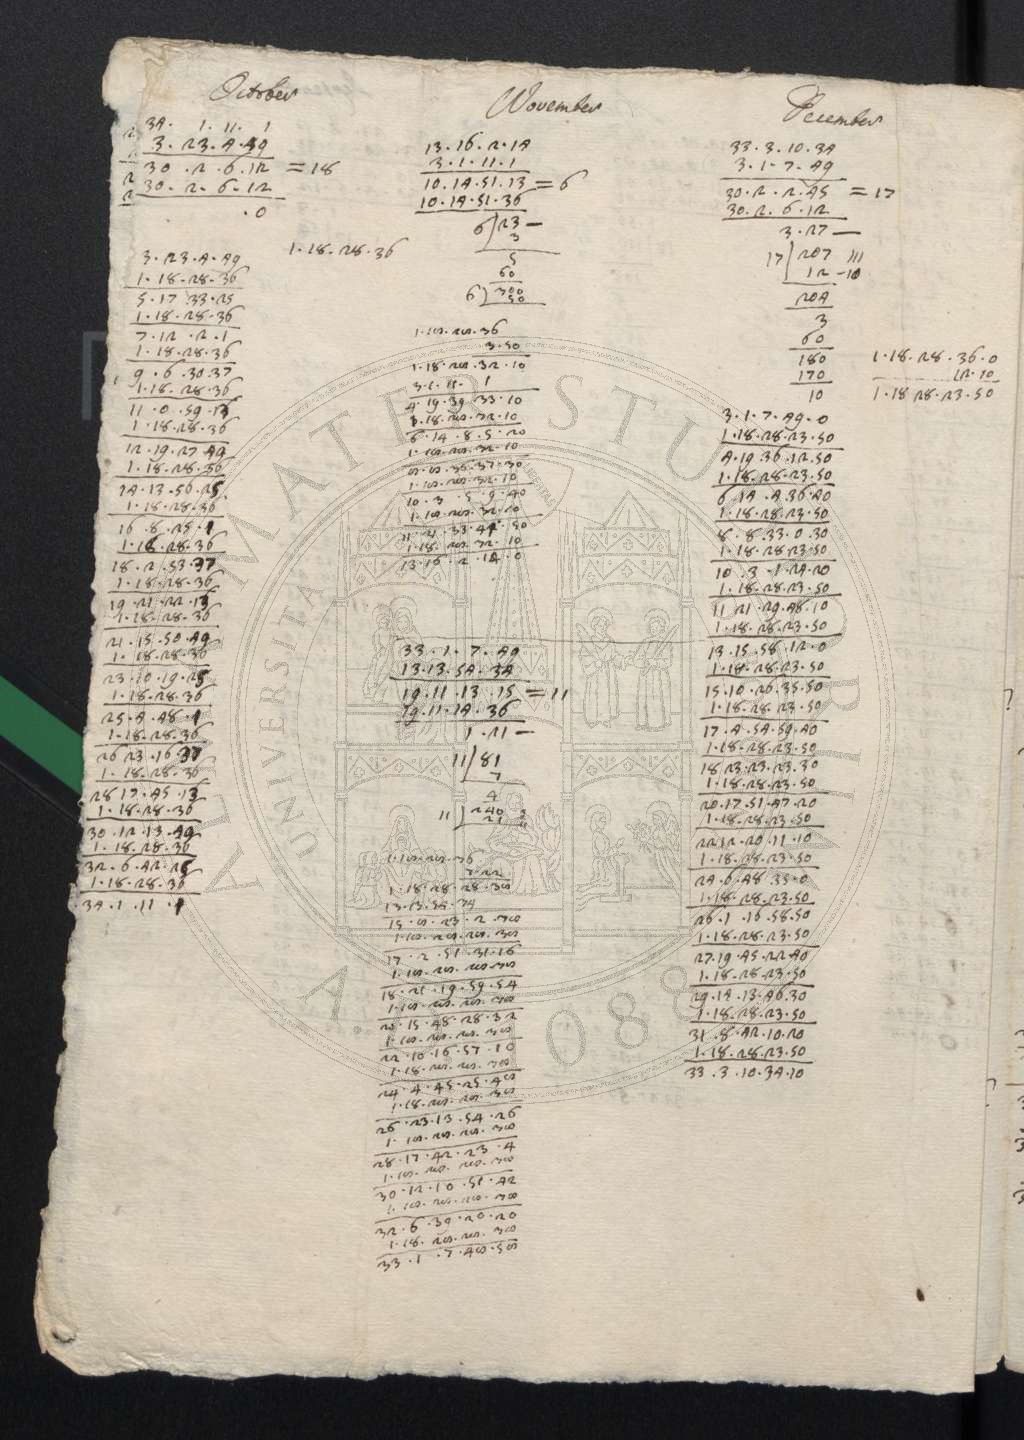 October
34. 1. 11. 1
3. 23. 4. 49
30. 2. 6. 12 = 18
30. 2. 6. 12
. 0
1. 18. 28. 36
3. 23. 4. 49
1. 18. 28. 36
5. 17 33. 25
1. 18. 28. 36
7. 12. 2. 1
1. 18. 28. 36
9. 6. 30. 37
1. 18. 28. 36
11. 0. 59. 13
1. 18. 28. 36
12. 19. 27. 49
1. 18. 28. 36
14. 13. 56. 25
1. 18. 28. 36
16. 8. 25. 1
1. 18. 28. 36
18. 2. 53. 37
1. 18. 28. 36
19. 21. 22. 13
1. 18. 28. 36
21. 15. 50. 49
1. 18. 28. 36
23. 10. 19. 25
1. 18. 28. 36
25. 4. 48. 1
1. 18. 28. 36
26 23. 16. 37
1. 18. 28. 36
28 17. 45. 13
1. 18. 28. 36
30. 12. 13. 49
1. 18. 28. 36
32. 6. 42. 25
1. 18. 28. 36
34. 1. 11. 1
November
13. 16. 2. 14
3. 1. 11. 1
10. 14. 51. 13 = 6
10. 14. 51. 36
6 | 23 —
3
5
60
6 | 300
50
1. 18. 28. 36
3. 50
1. 18. 28. 32. 10
3. 1. 11. 1
4. 19. 39. 33. 10
1. 18. 28. 32. 10
6. 14. 8. 5. 20
1. 18. 28. 32. 10
8. 8. 36. 37. 30
1. 18. 28. 32. 10
10. 3. 5. 9. 40
1. 18. 28. 32. 10
11. 21. 33. 41. 50
1. 18. 28. 32. 10
13. 16. 2. 14. 0
33. 1. 7. 49
13. 13. 54. 34
19. 11. 13. 15 = 11
19. 11. 14. 36
1. 21 —
11 | 81
7
4
11 | 240
21
1. 18. 28. 36
7. 22
1. 18. 28. 28. 38
13. 13. 54. 34
15. 8. 23. 2. 38
1. 18. 28. 28. 38
17. 2. 51. 31. 16
1. 18. 28. 28. 38
18. 21. 19. 59. 54
1. 18. 28. 28. 38
20. 15. 48. 28. 32
1. 18. 28. 28. 38
22. 10. 16. 57. 10
1. 18. 28. 28. 38
24. 4. 45. 25. 48
1. 18. 28. 28. 38
26. 23. 13. 54. 26
1. 18. 28. 28. 38
28. 17. 42. 23. 4
1. 18. 28. 28. 38
30. 12. 10. 51. 42
1. 18. 28. 28. 38
32. 6. 39. 20. 20
1. 18. 28. 28. 38
33. 1. 7. 48. 58
December
33. 3. 10. 34
3. 1. 7. 49
30. 2. 2. 45 = 17
30. 2. 6. 12
3. 27 —
17 | 207 111
12 - 10
204
3
60
180
170
10
1. 18. 28. 36. 0
12. 10
1. 18 28. 23. 50
3. 1. 7. 49. 0
1. 18. 28. 23. 50
4. 19. 36. 12. 50
1. 18. 28. 23. 50
6 14. 4. 36. 40
1. 18. 28. 23. 50
8. 8. 33. 0. 30
1. 18. 28 23. 50
10. 3. 1. 24. 20
1. 18. 28. 23. 50
11 21. 29. 48. 10
1. 18. 28. 23. 50
13. 15. 58. 12. 0
1. 18. 28. 23. 50
15. 10. 26. 35. 50
1. 18. 28. 23. 50
17. 4. 54. 59. 40
1. 18. 28. 23. 50
18 23. 23. 23. 30
1. 18. 28. 23. 50
20. 17. 51. 47. 20
1. 18. 28. 23. 50
22 12. 20. 11. 10
1. 18. 28. 23. 50
24. 6. 48. 35. 0
1. 18. 28. 23. 50
26. 1. 16. 58. 50
1. 18. 28. 23. 50
27. 19. 45. 22. 40
1. 18. 28. 23. 50
29. 14. 13. 46. 30
1. 18. 28. 23. 50
31. 8. 42. 10. 20
1. 18. 28. 23. 50
33. 3. 10. 34. 10
ALMA MATER STUDIORUM
A.D. 1088